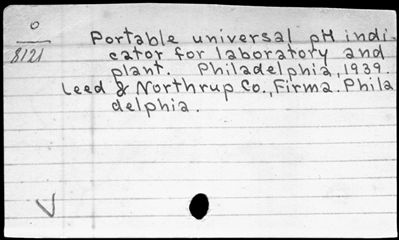 O
8121
Portable universal pH indi-
cator for laboratory and
plant. Philadelphia, 1939.
Leed & Northrup Co., Firma. Phila
delphia.
V